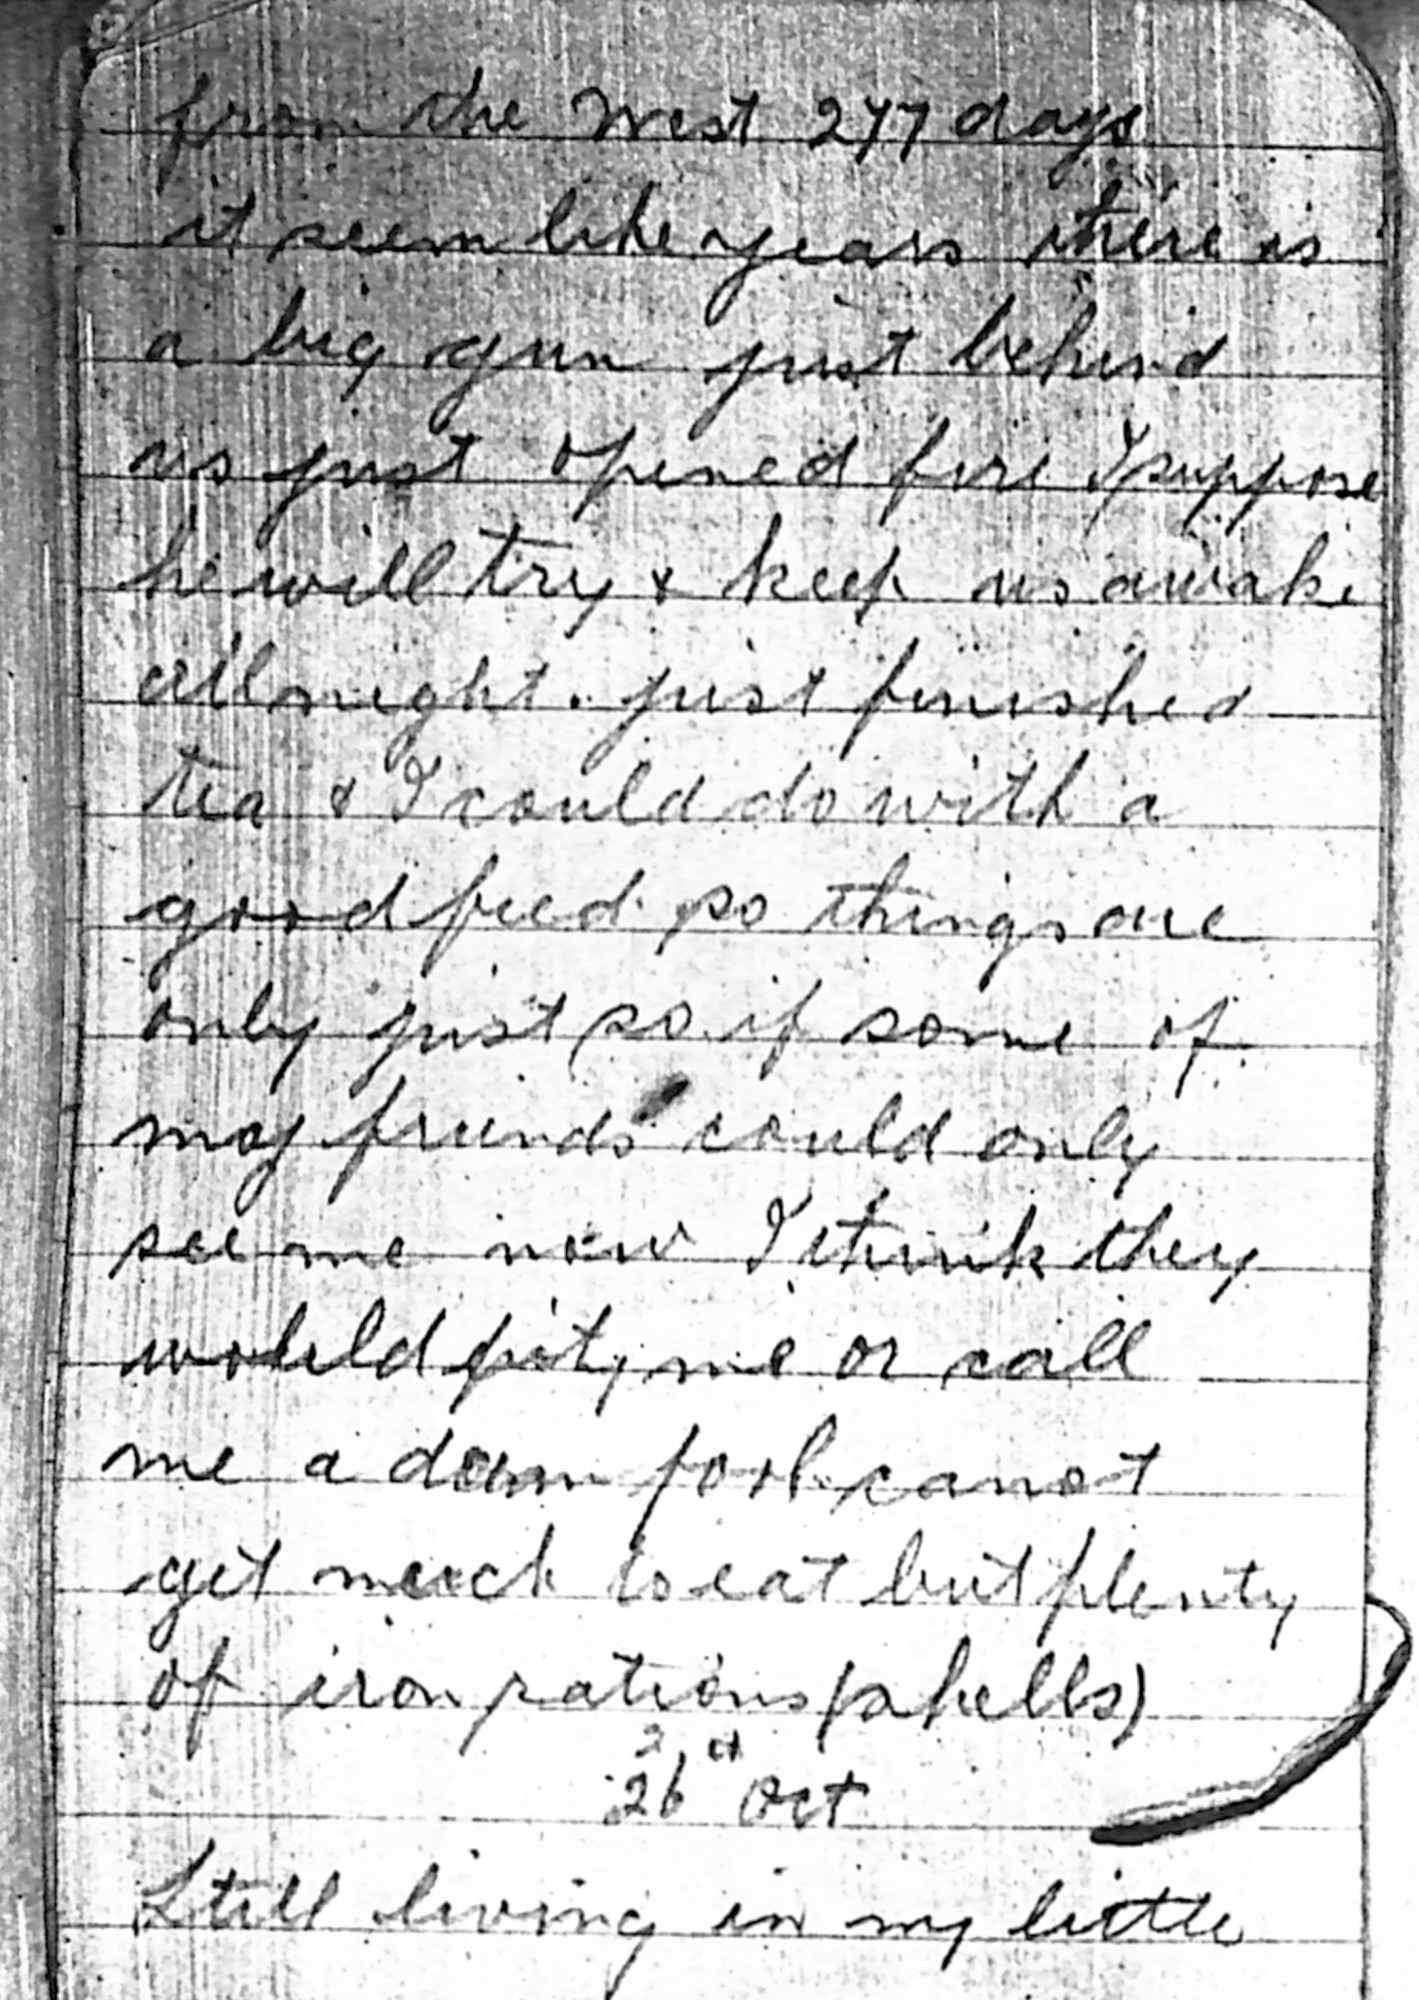 from the West 277 days
it seem like years there is
a big gun just behind
us just opened fire I suppose
he will try & keep us awake
all night. just finished
tea & I could do with a
good feed. so things are
only just so. if some of
my friends could only
see me now I think they
would pity me or call
me a damn fool. canot
get much to eat but plenty
of iron rations (shells)
26 Oct
Still living in my little